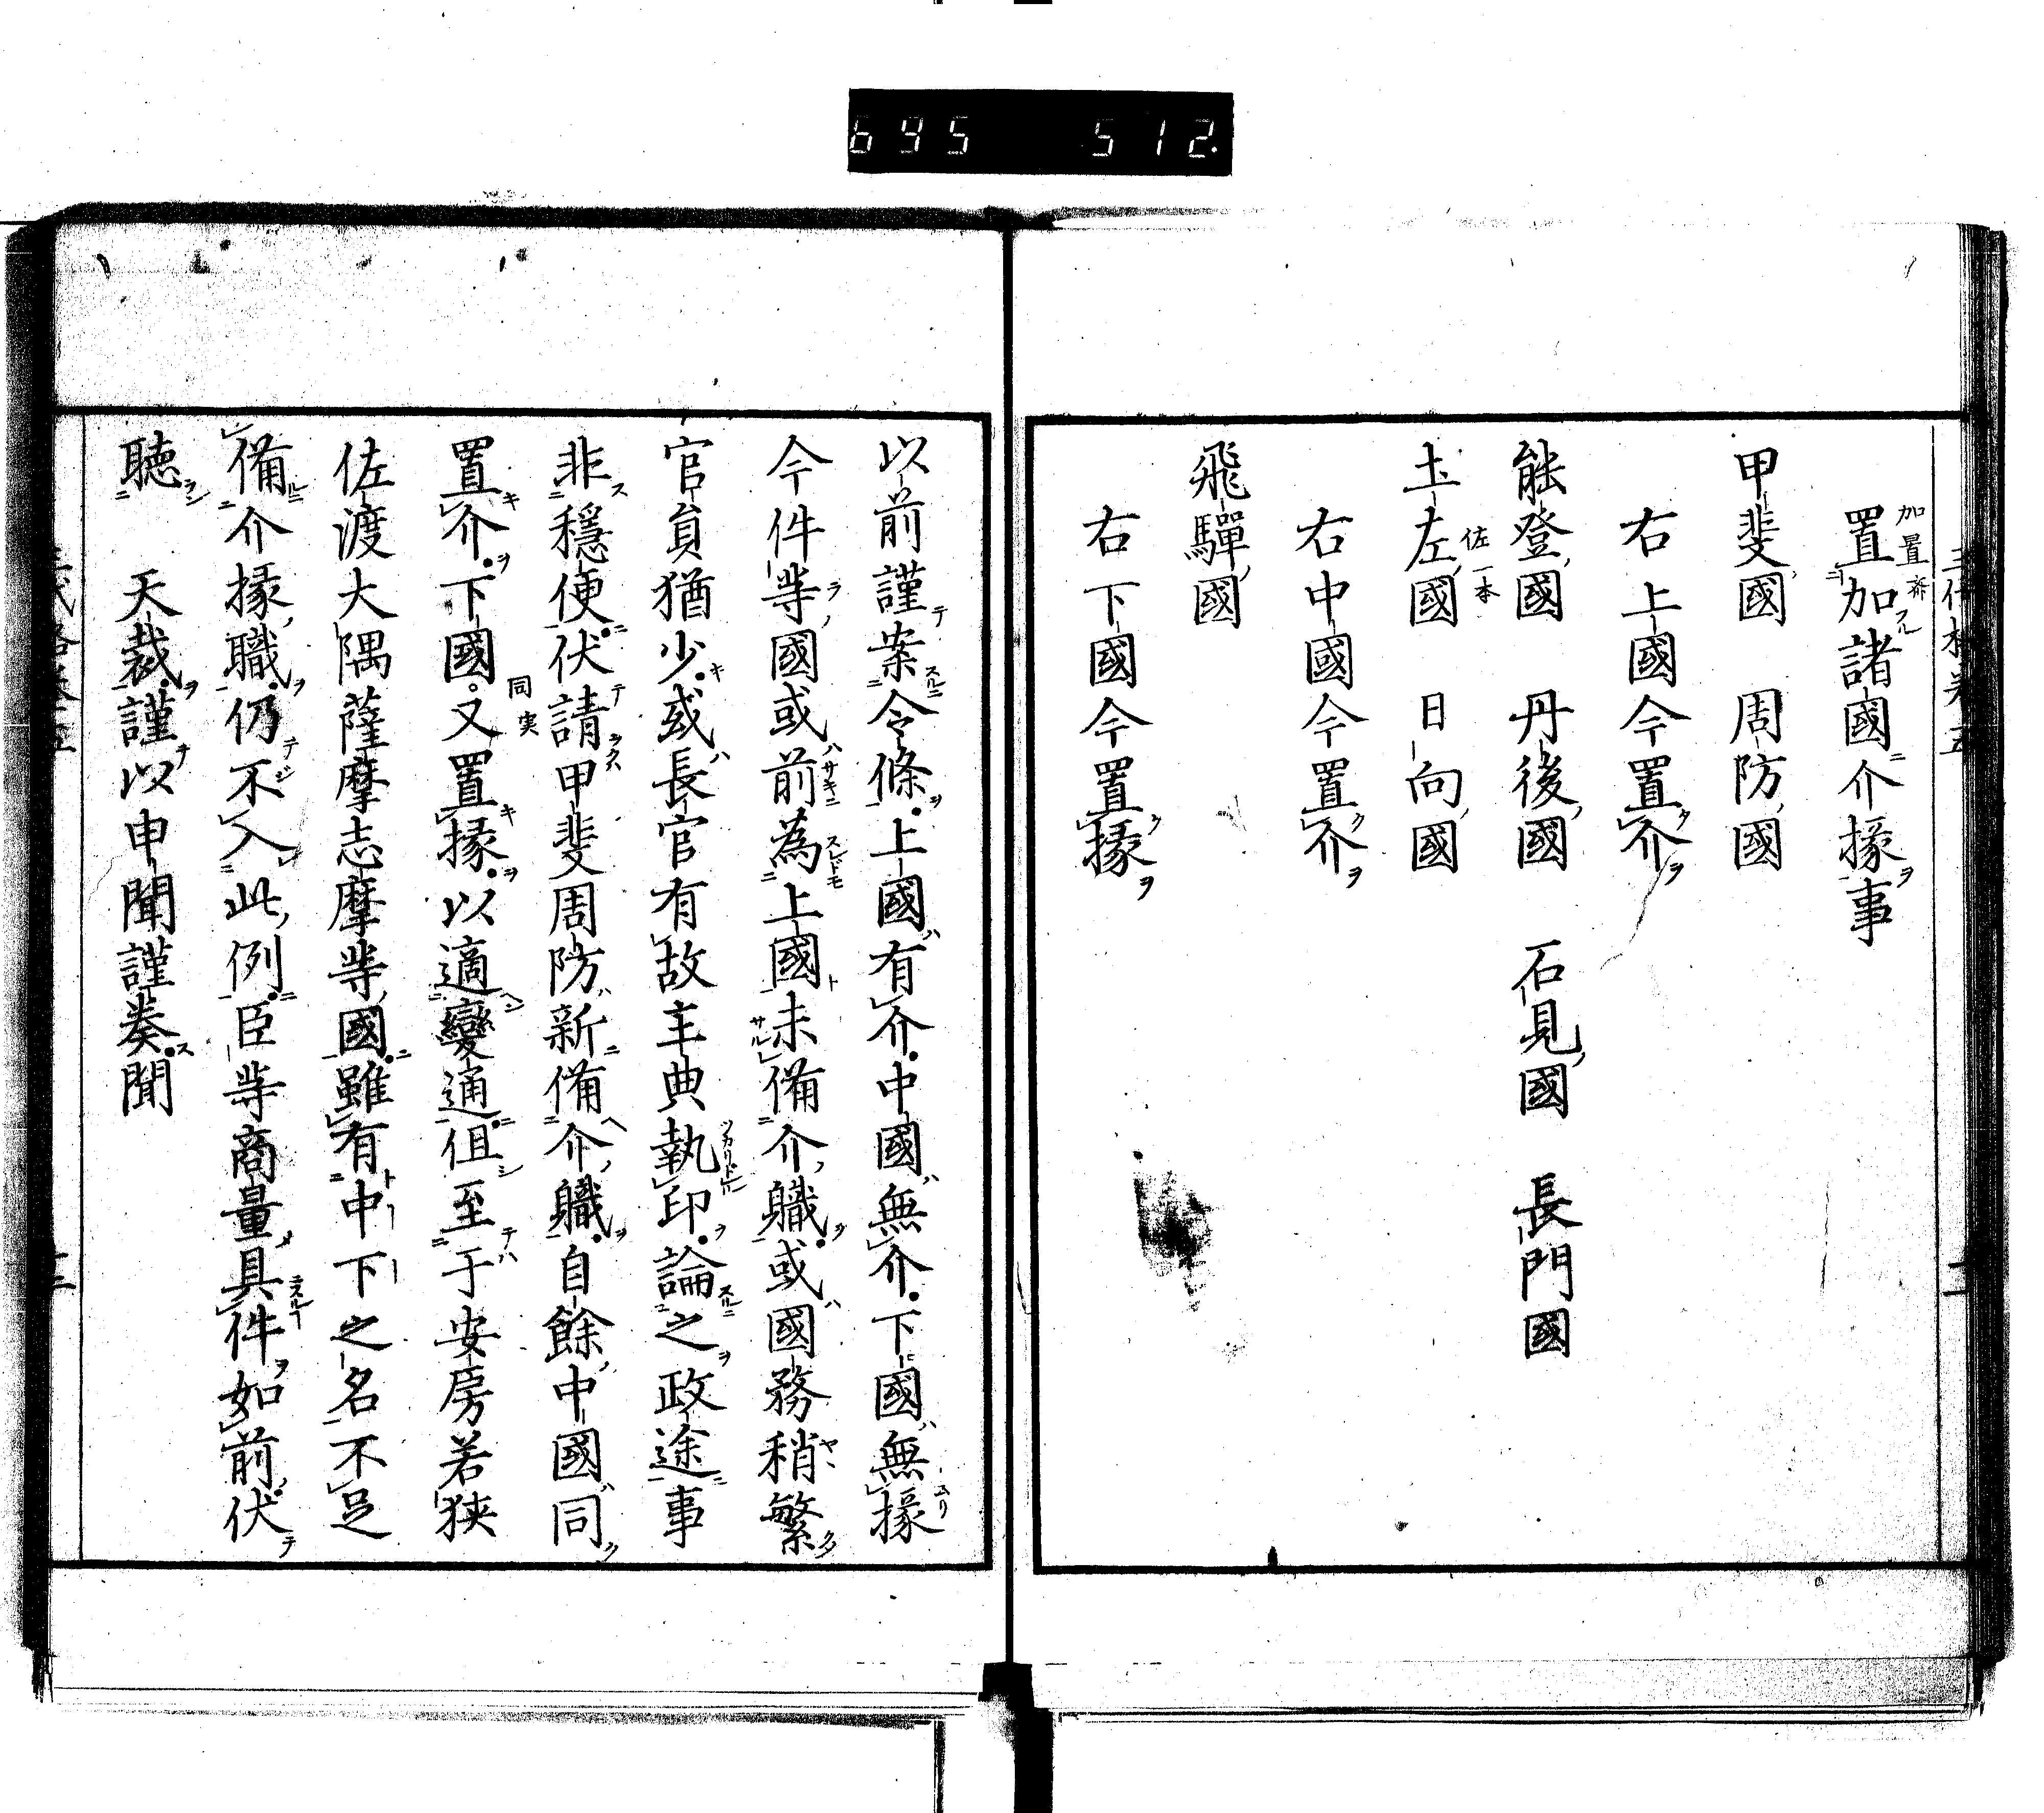 695 512
置加諸國介掾事
甲斐國 周防國
右上國今置介
能登國 丹後國 石見國 長門國
圡左國 日向國
佐一本
右中國今置介
飛驒國
右下國今置掾
以前謹案令條上國有介中國無介下國無掾
今件等國或前為上國未備介職或國務稍繁
官員猶少或長官有故主典執印論之政途事
非穩便伏請甲斐周防新備介職自餘中國同
置介下國又置掾以適變通但至于安房若狭
同実
佐渡大隅薩摩志摩等國雖有中下之名不足
備介掾職仍不入此例臣等商量具件如前伏
聴 天裁謹以申聞謹奏聞